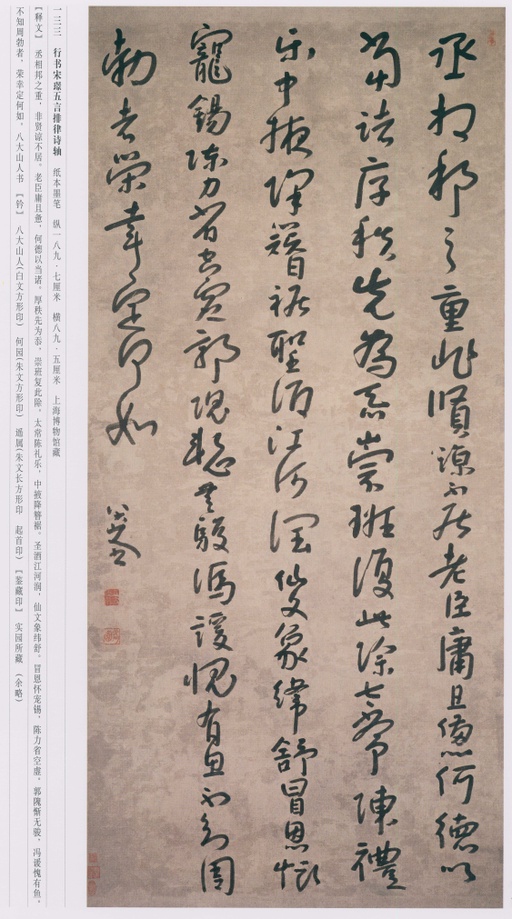 丞相邦之重非賢諒不居老臣庸且憊何德以
當諾厚秩先為忝崇班復此除太常陳禮
乐中掖降簪裾聖酒江河潤仙文象緯舒冒恩懷
寵錫陳力省空虛郭隗慙无駿馮諼愧有魚不知周
勃者榮幸定何如
八大山人
一三三 行书宋璟五言排律诗轴 纸本墨笔 纵一八九·七厘米 横八九·五厘米 上海博物馆藏
【释文】 丞相邦之重，非贤谅不居。老臣庸且惫，何德以当诺。厚秩先为忝，崇班复此除。太常陈礼乐，中掖降簪裾。圣酒江河润，仙文象纬舒。冒恩怀宠锡，陈力省空虚。郭隗惭无骏，冯谖愧有鱼。
不知周勃者，荣幸定何如。八大山人书 【钤】 八大山人(白文方形印) 何园(朱文方形印) 遥属(朱文长方形印 起首印) 【鉴藏印】 实园所藏 (余略)